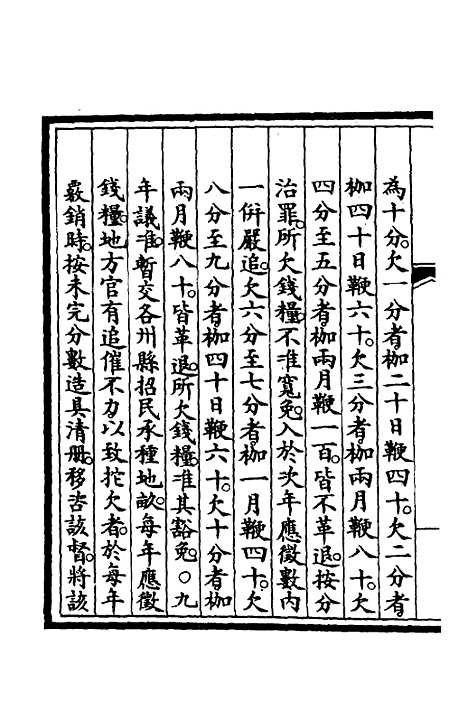 為十分。欠一分者枷二十日鞭四十。欠二分者
枷四十日鞭六十。欠三分者枷兩月鞭八十。欠
四分至五分者枷兩月鞭一百。皆不革退。按分
治罪。所欠錢糧。不准寬免。入於次年應徵數內
一併嚴追。欠六分至七分者枷一月鞭四十。欠
八分至九分者枷四十日鞭六十。欠十分者枷
兩月鞭八十。皆革退。所欠錢糧。准其豁免。○九
年議准。暫交各州縣招民承種地畝。每年應徵
錢糧。地方官有追催不力以致拕欠者。於每年
覈銷時。按未完分數造具清册。移咨該督。將該